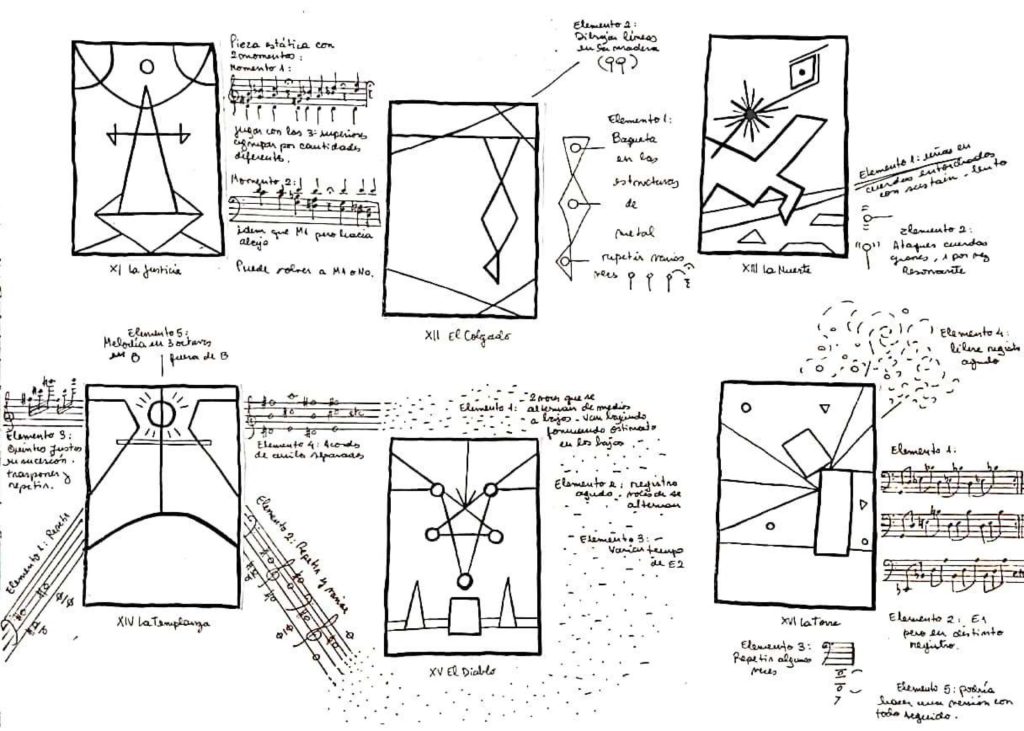 Pieza estática con
2 momentos:
Momento 1:
jugar con las 3: superiores
agrupar por cantidades
diferente.
Momento 2:
Idem que M1 pero hacia
abajo
Puede volver a M1 o No.
XI La Justicia
Elemento 2:
Dibujar líneas
en la madera
(99)
Elemento 1:
Baqueta
en las
estructuras
de
metal
repetir varias
veces
XII El Colgado
Elemento 1: uñas en
cuerdas entorchadas
con sustain. lento
Elemento 2:
Ataques cuerdas
graves, 1 por vez
Resonante
XIII La Muerte
Elemento 5:
Melodía en 3 octavas
en B fuera de B
Elemento 3:
Quintas justas
en sucesión.
trasponer y
repetir.
etc
Elemento 4: Acordes
de anillo separados
Elemento 1: Repetir
Elemento 2: Repetir y variar
XIV La Templanza
Elemento 1: 2 voces que se
alternan de medios
a bajos. Van bajando
formando ostinato
en los bajos
Elemento 2: registro
agudo - roles de se
alternan
Elemento 3:
Varias tempo
de E2
XV El Diablo
Elemento 4:
libre registro
agudo
Elemento 1:
Elemento 2: E1
pero en distinto
registro.
Elemento 3:
Repetir algunas
veces
Elemento 5: podría
hacer una versión con
todo seguido.
XVI La Torre